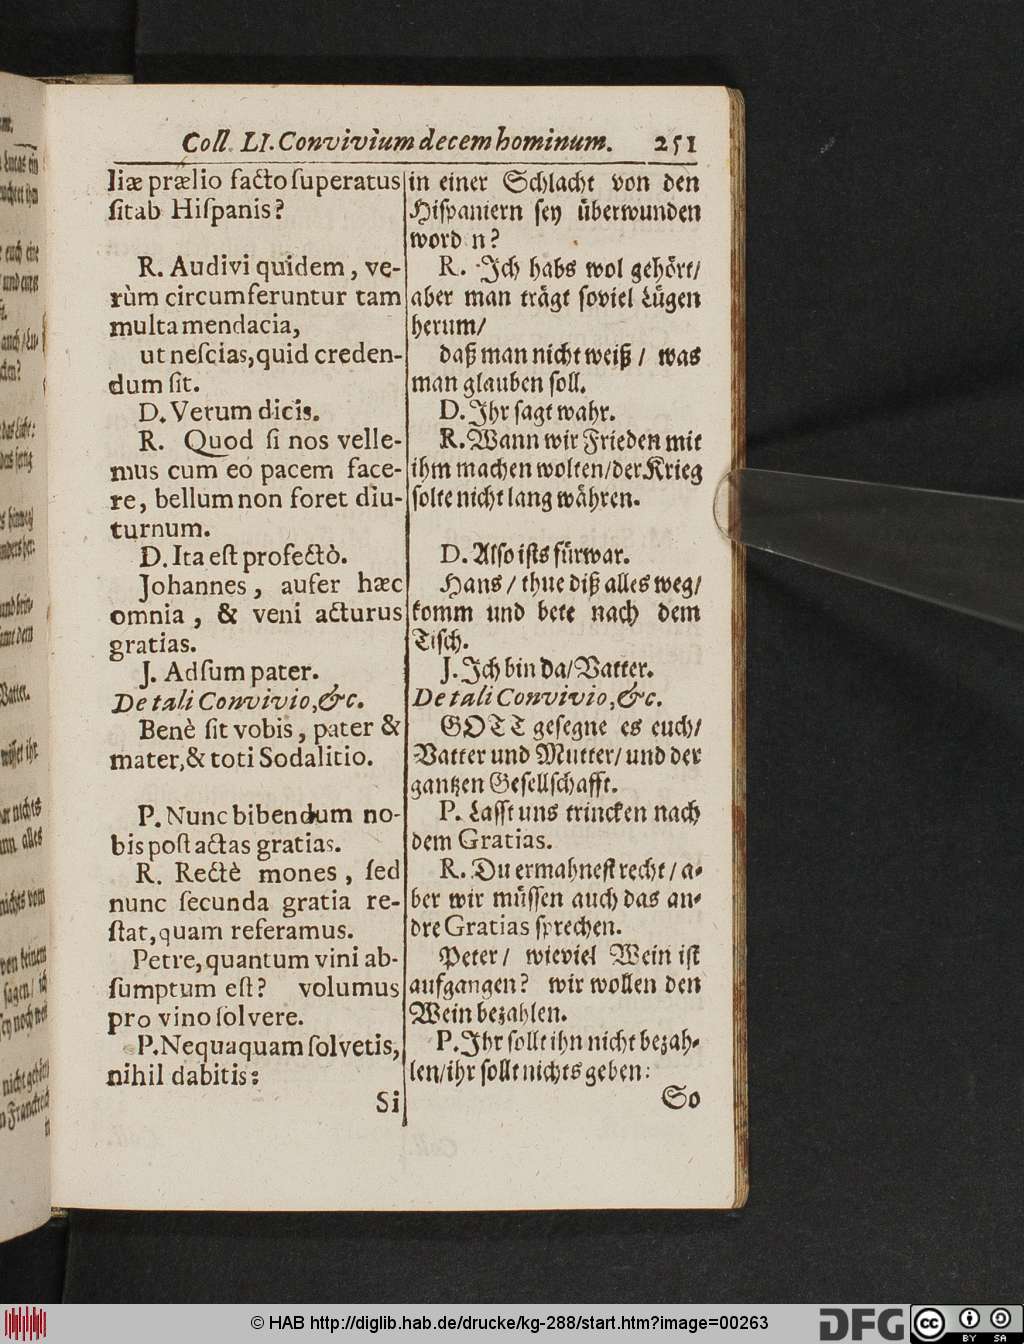 Coll. LI. Convivium decem hominum. 251
liæ prælio facto ſuperatus
ſit ab Hiſpanis?
R. Audivi quidem, ve-
rùm circumferuntur tam
multa mendacia,
ut neſcias, quid creden-
dum ſit.
D. Verum dicis.
R. Quod ſi nos velle-
mus cum eo pacem face-
re, bellum non foret diu-
turnum.
D. Ita eſt profectò.
Johannes, aufer hæc
omnia, & veni acturus
gratias.
J. Adſum pater.
De tali Convivio, &c.
Benè ſit vobis, pater &
mater, & toti Sodalitio.
P. Nunc bibendum no-
bis poſt actas gratias.
R. Rectè mones, ſed
nunc ſecunda gratia re-
ſtat, quam referamus.
Petre, quantum vini ab-
ſumptum eſt? volumus
pro vino ſolvere.
P. Nequaquam ſolvetis,
nihil dabitis:
Si
in einer Schlacht von den
Hiſpaniern ſey überwunden
word n?
R. Ich habs wol gehört/
aber man trägt ſoviel Lügen
herum/
daß man nicht weiß / was
man glauben ſoll.
D. Ihr ſagt wahr.
R. Wann wir Frieden mit
ihm machen wolten/der Krieg
ſolte nicht lang währen.
D. Alſo iſts fürwar.
Hans / thue diß alles weg/
komm und bete nach dem
Tiſch.
J. Ich bin da/Vatter.
De tali Convivio, &c.
GOTT geſegne es euch/
Vatter und Mutter/ und der
gantzen Geſellſchafft.
P. Laſſt uns trincken nach
dem Gratias.
R. Du ermahneſt recht / a-
ber wir müſſen auch das an-
dre Gratias ſprechen.
Peter / wieviel Wein iſt
aufgangen? wir wollen den
Wein bezahlen.
P. Ihr ſollt ihn nicht bezah-
len/ihr ſollt nichts geben:
So
© HAB http://diglib.hab.de/drucke/kg-288/start.htm?image=00263
DFG
cc BY SA